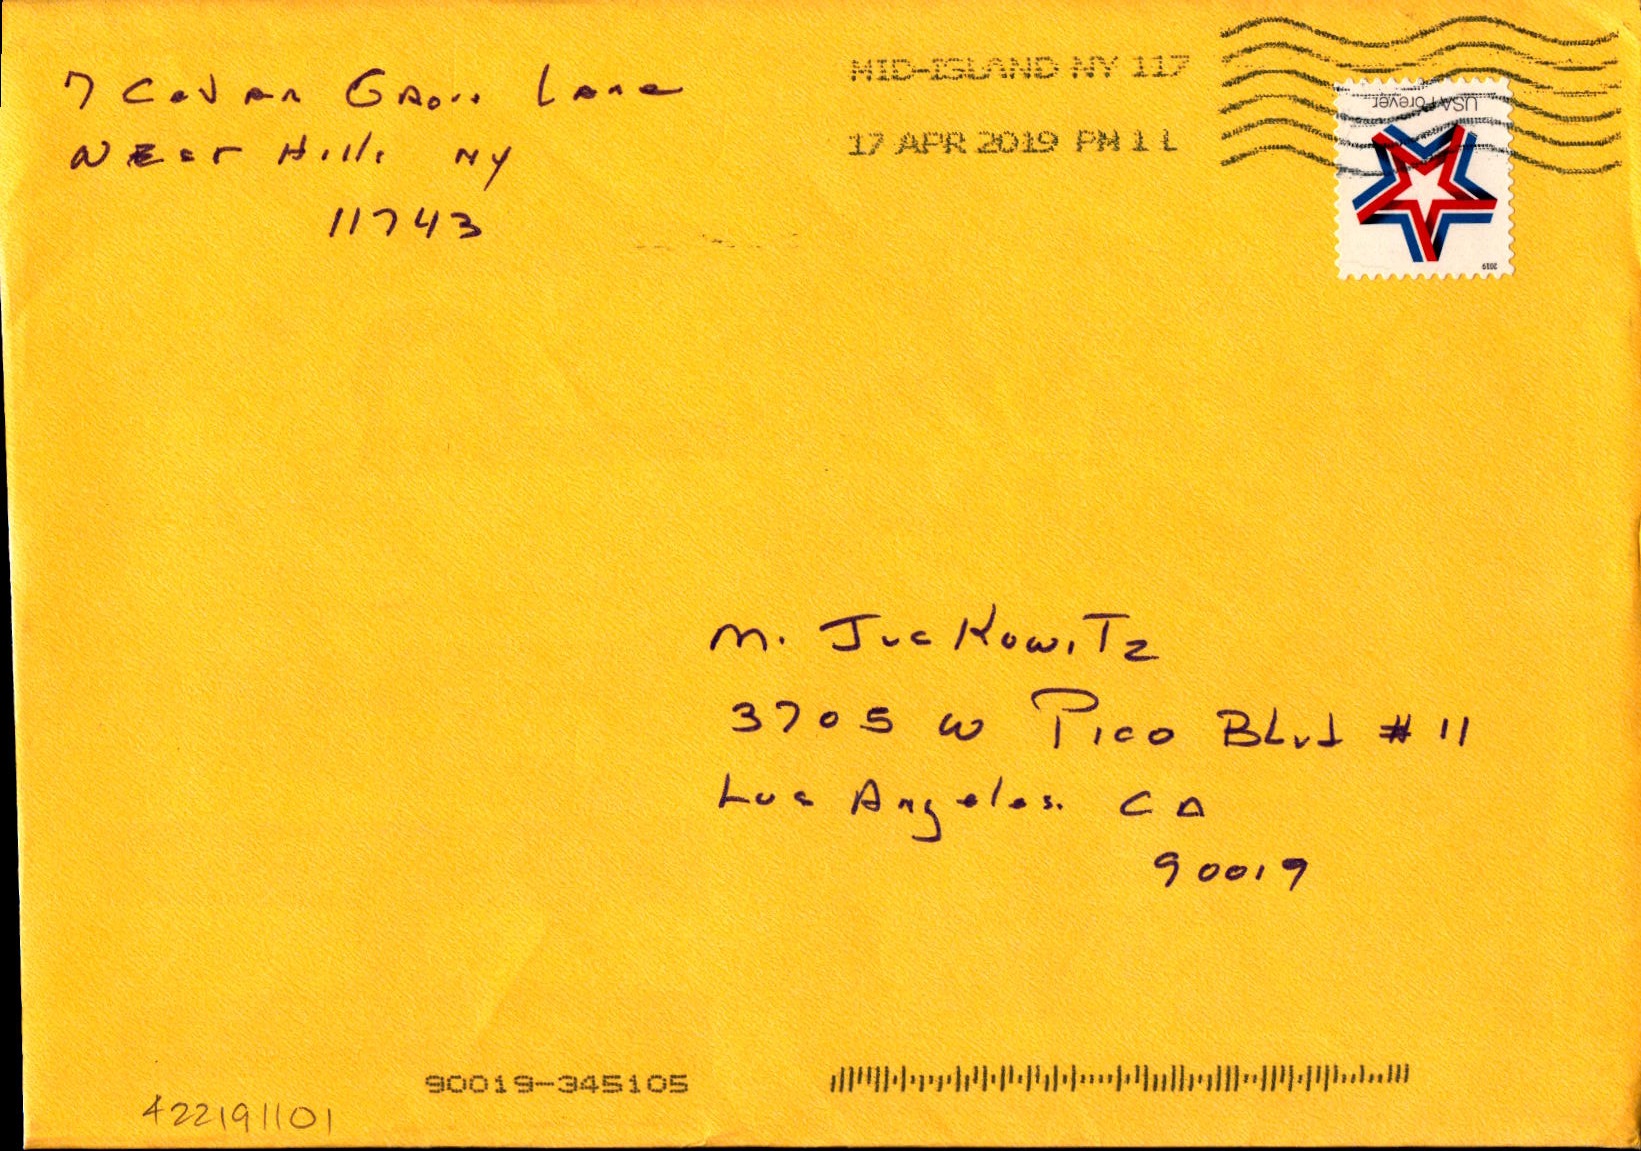 7 Cedar Grove Lane
West Hills NY
11743
MID-ISLAND NY 117
17 APR 2019 PM 1 L
USA Forever
2019
M. Juckowitz
3705 W Pico Blvd # 11
Los Angeles. CA
90019
90019-345105
422191101